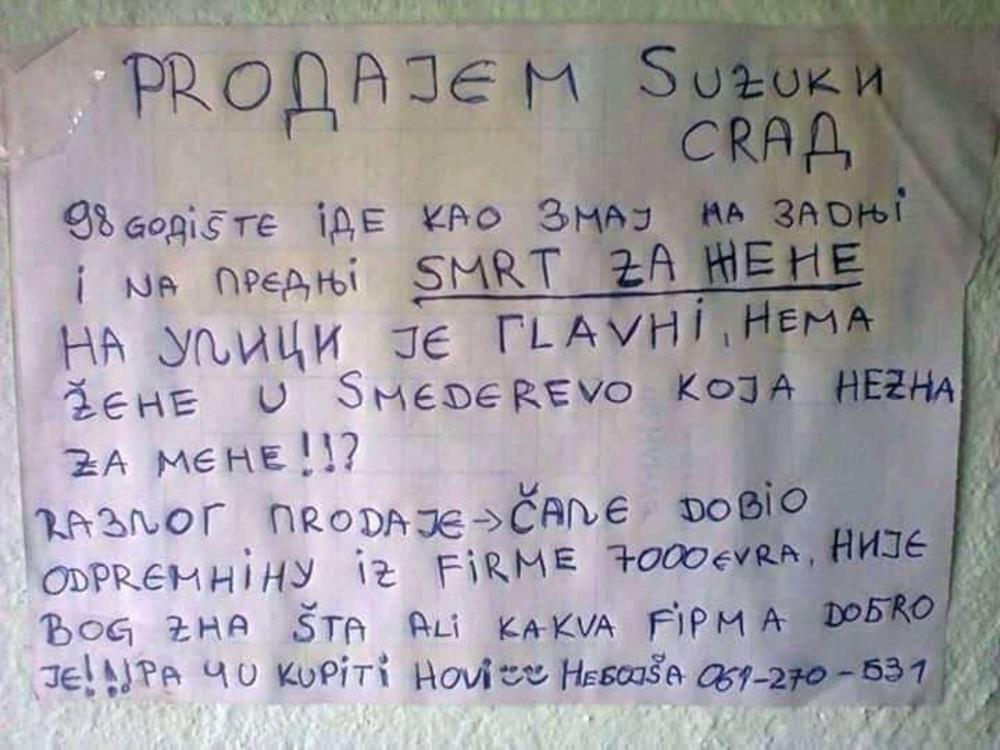 PRОДАЈЕМ SUZUKИ
CRAД
98 GОДİŠТЕ İДЕ КАО ЗМАЈ НА ЗАДЊİ
İ NА ПРЕДЊİ SMRT ZA ЖЕНЕ
НА УЛИЦИ ЈЕ ГLAVНİ, НЕМА
ŽЕНЕ U SMEDEREVO КОЈА НЕZНА
ZА МЕНЕ!!!?
RАЗЛОГ ПRОDАЈЕ→ČАЛЕ DОBİО
ODPREMНİНУ İZ FİRME 7000 EVRA, НИЈЕ
BOG ZНА ŠTA ALİ KAKVA FİРМА DOБRO
ЈЕ!!!ЈРА ЧU KUPİTİ НОVİ НЕБОЈŠА 061-270-531